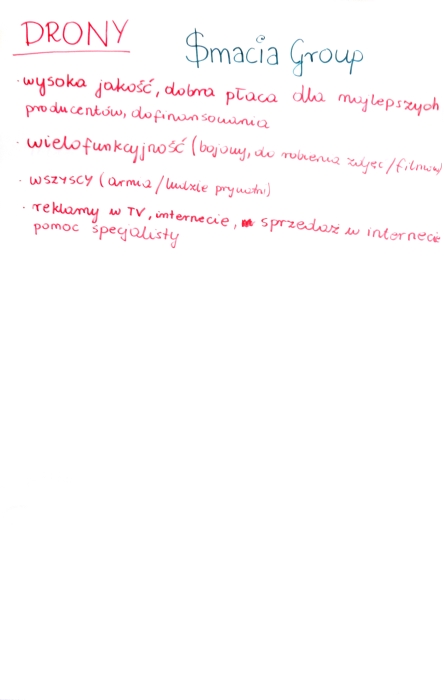 DRONY
$macia Group
· wysoka jakość, dobra płaca dla najlepszych
producentów, dofinansowania
· wielofunkcyjność (bojowy, do robienia zdjęć/filmów)
· wszyscy (armia/ludzie prywatni)
· reklamy w TV, internecie, sprzedaż w internecie
pomoc specjalisty